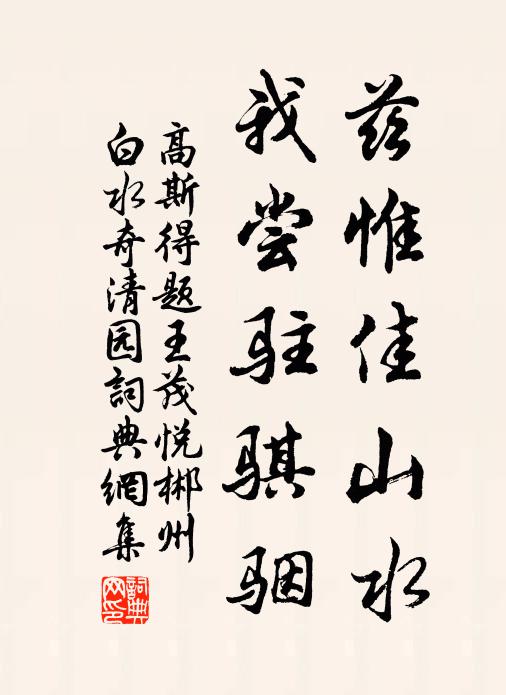 兹惟佳山水
我尝驻骐骃
高斯得题王茂悦郴州
白水奇清园詞典網集
詞典网印